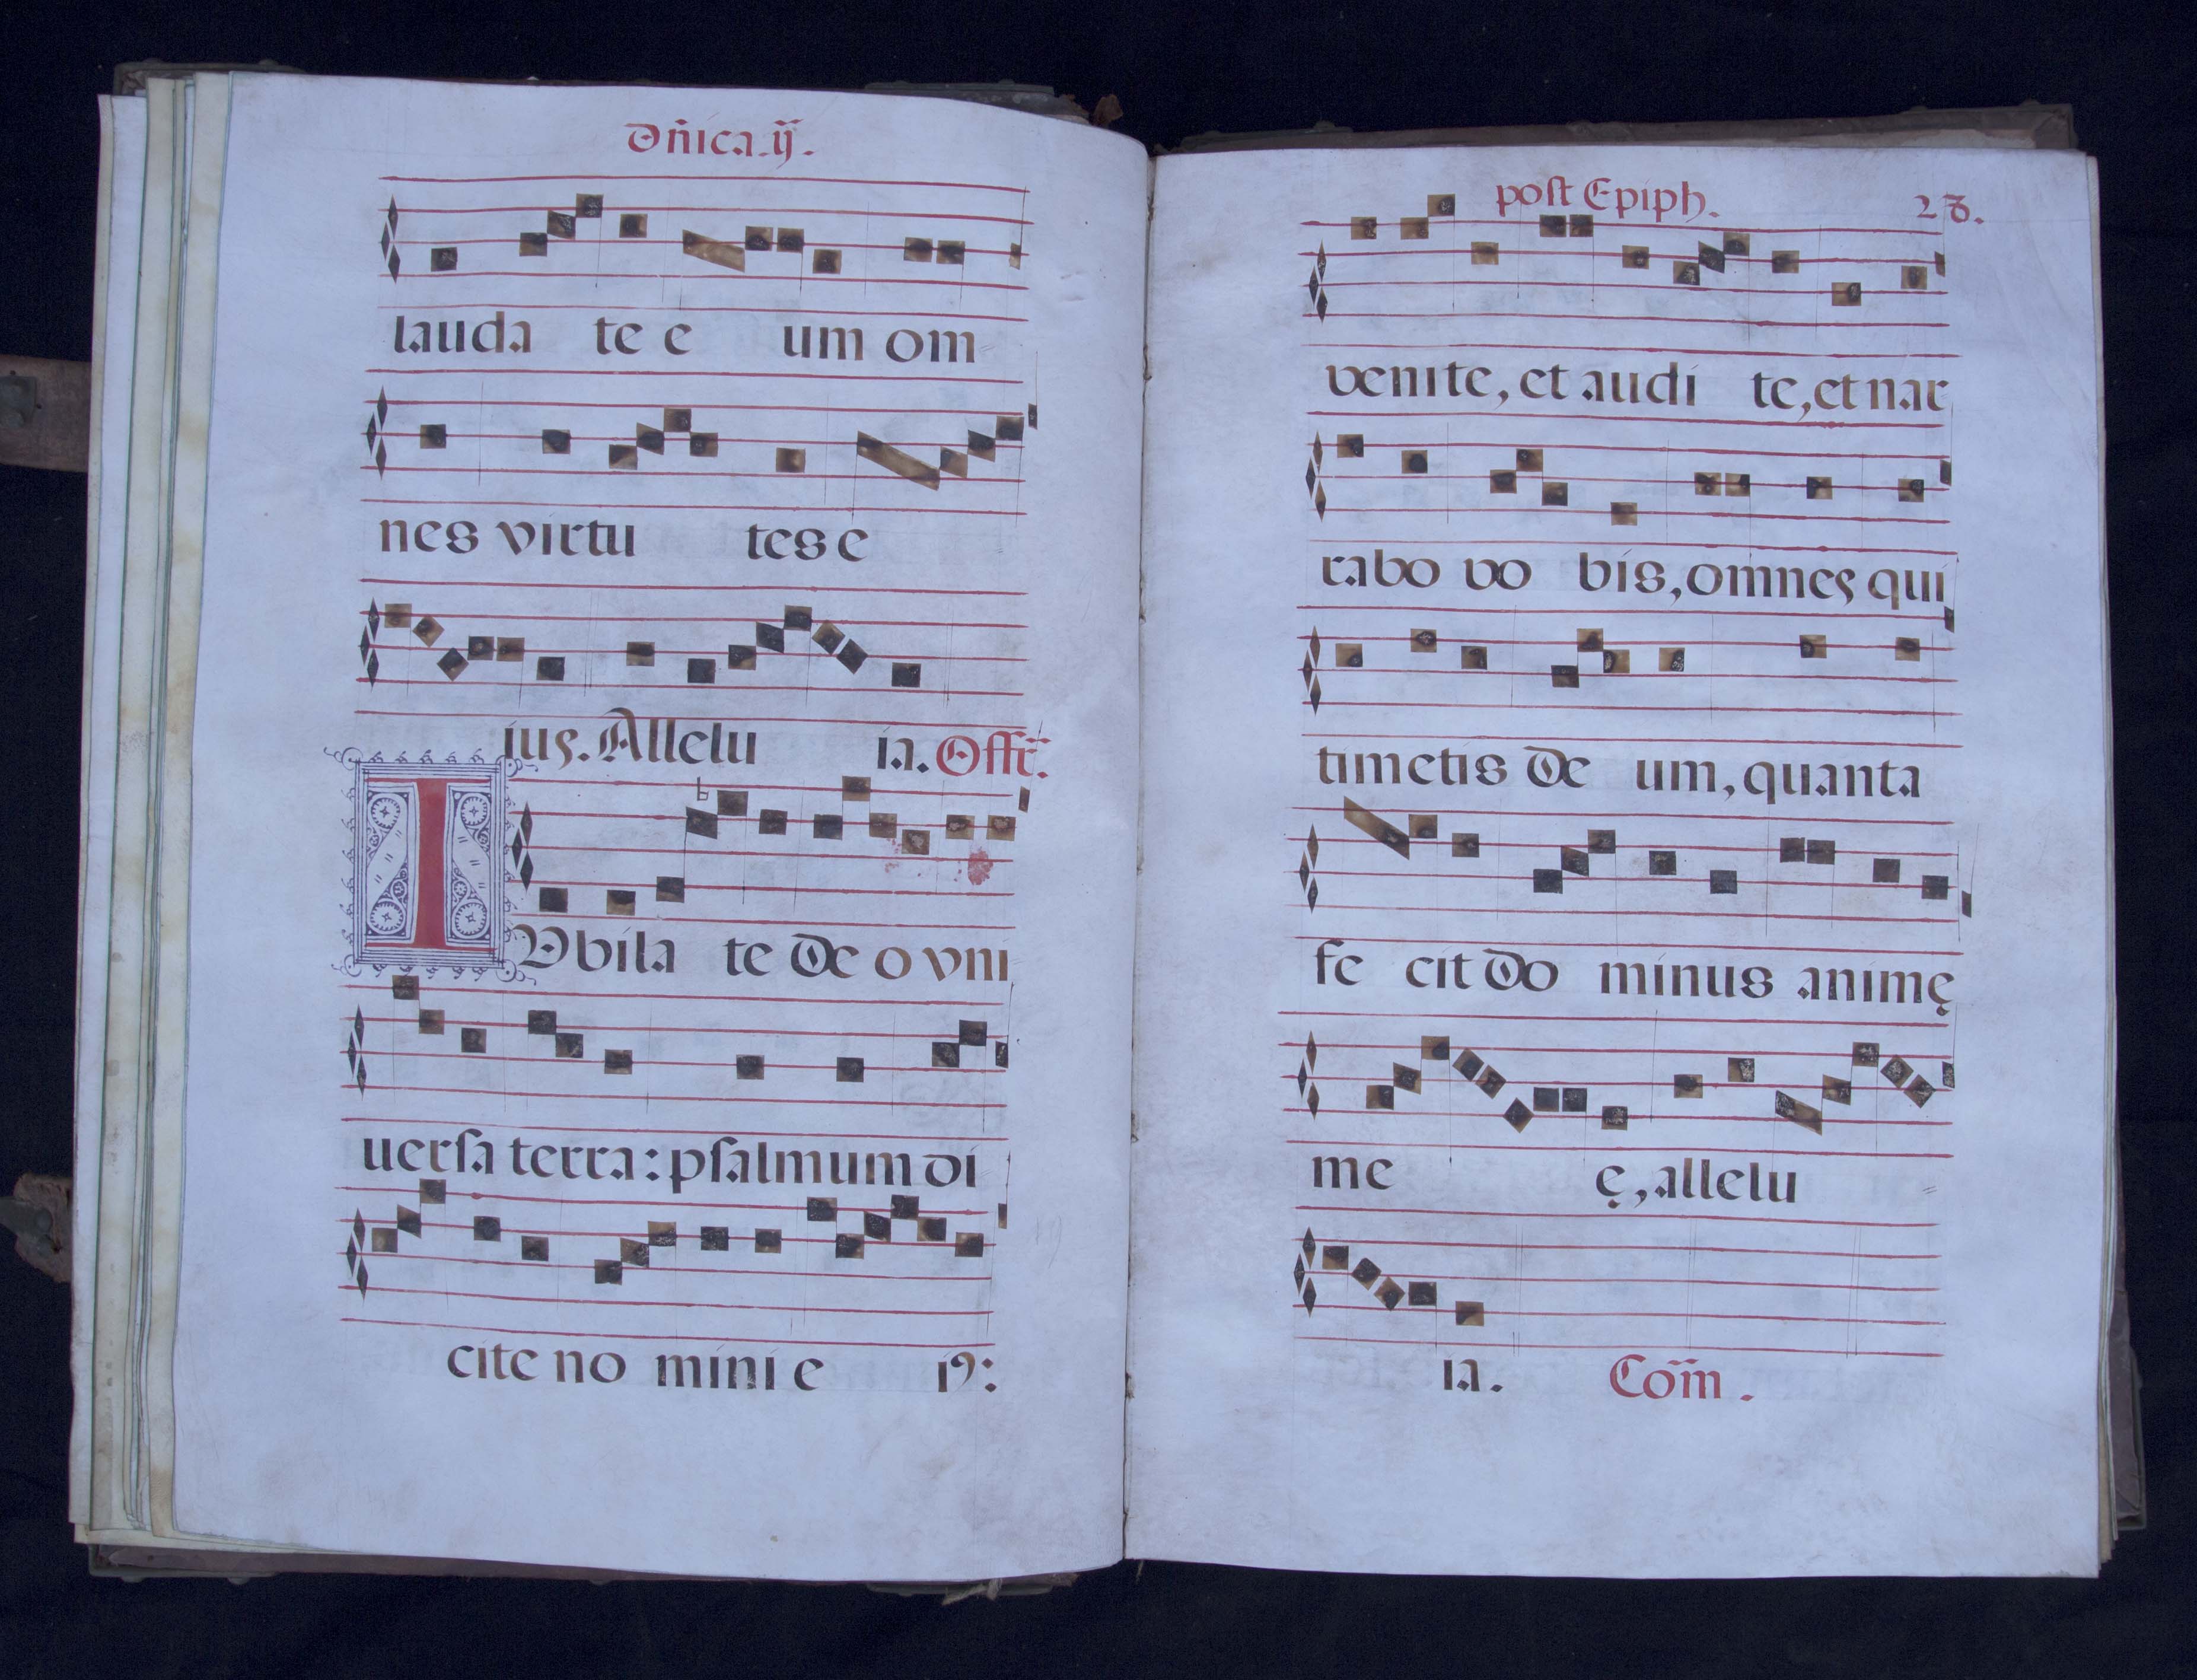 Dñica. ij.
lauda te e um om
nes virtu tes e
ius. Allelu ia. Offr̃.
IVbila te De o vni
uersa terra: psalmum di
cite no mini e i9:
post Epiph. 28.
venite, et audi te, et nar
rabo vo bis, omnes qui
timetis De um, quanta
fe cit Do minus animę
me ę, allelu
ia. Com̃.